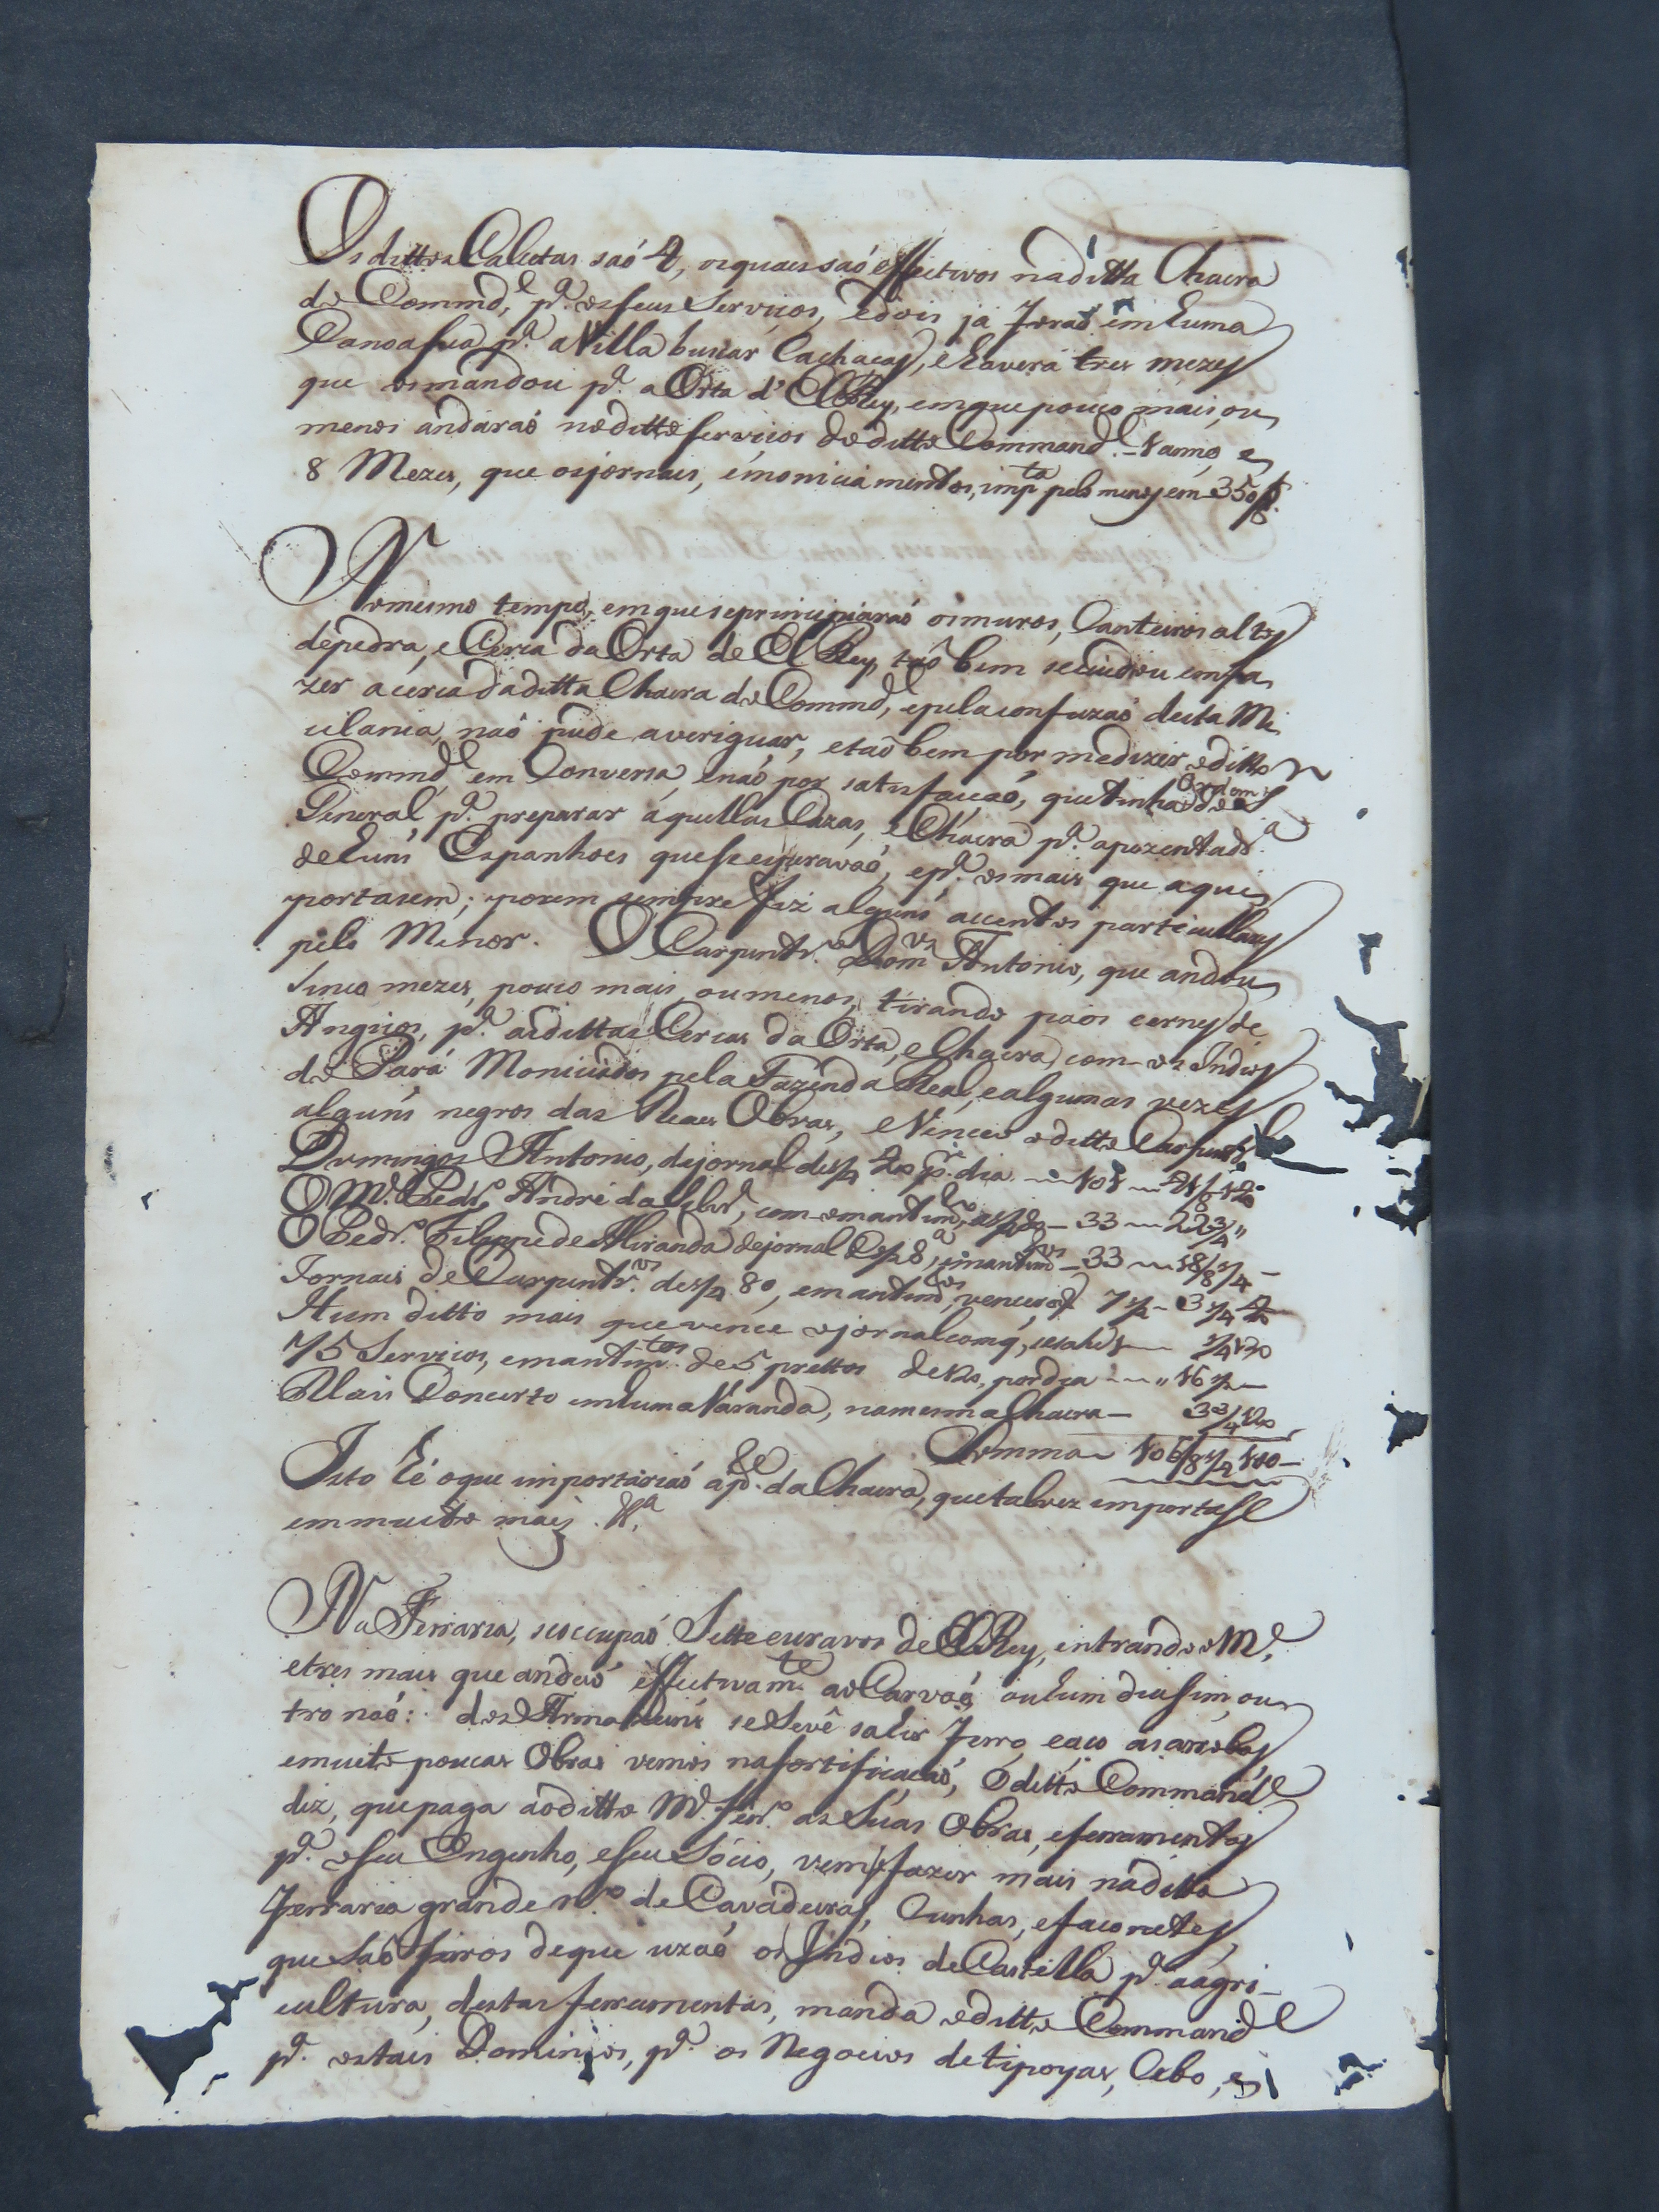 Os dittos Calcetas saó 4, os quais saó effectivos na ditta Chacra
do Commd.e, p.a os seus Serviços, e dois já foraó em huma
Canoa sua p.a a Villa buscar Cachaças, e haverá tres mezes
que os mandou p.a a Orta d'ElRey, em que pouco mais, ou
menos andaraó no ditto serviços do ditto Command.e 1 anno, e
8 Mezes, que os jornais, e moniciamentos, imp.ta pelo menos em 350/8.
No mesmo tempo, em que se principiaraó os muros, Canteiros altos
de pedra, e Cerca da Orta de El Rey, taó bem se cuidou em fa
zer a cerca da ditta Chacra do Commd.e, e pela confuzaó desta Mi
cilania, naó pude averiguar, e taó bem por me dizer o ditto
Commd.e em Conversa, e naó por satisfacaó, que tinha Ordem do S.
General p.a preparar aquellas Cazas, e Chacra p.a apozentad.a
de huns Espanhoes que se esperavaó, e p.a os mais que aqui
portasem; porem sempre fiz alguns accentos particullares
pelo Menor. O Carpintr.o Dom.os Antonio, que andou
sinco mezes, pouco mais, ou menos, tirando paos cernes de
Angicos, p.a as dittas Cercas da Orta, e Chacra, com os Indios
do Pará Moniciados pela Fazenda Real, e algumas vezes
alguns negros das Reaes Obras, e Vinceo o ditto Carpintr.o
Domingos Antonio, de jornal de 1/4 20 p.r dia 101
O M.e Pedr.o André da Silv.a, com o mantim.to 33 22 3/4
O Pedr.o Filippe de Miranda de jornal, e mantim.tos 33 18/8 1/4
Jornais de Carpintr.os de 1/4 80, e mantim.os, venceraó 7 1/2 3 1/4
Hum ditto mais que vence o jornal
75 Serviços, e mantim.tos de 5 prettos de 120, por dia 16 1/2
Mais Concerto em huma Varanda, na mesma Chacra 3 3/4
Somma 106/8 1/2 180
Isto hé o que importariaó a p.de da Chacra, que talvez importasse
em muito mais.
Na Ferraria, se occupaó Sette escravos de ElRey, entrando o M.e,
e tres mais que andaó effectivam.te ao Carvaó ou hum dia sim, ou
tro naó: dos Armazeins se devê sahir ferro, e aco as arrobas,
e muito poucas Obras vemos na fortificacaó, O ditto Command.e
diz, que paga ao ditto M.e Ferr.o as Suas Obras, e ferramentas
p.a o seu Engenho, e seu Sócio, vem fazer mais na ditta
Ferraria grande n.o de Cavadeiras, Cunhas, e faconetes,
que saó ferros de que uzaó os Indios de Castella p.a a agri-
cultura, destas ferramentas, manda o ditto Command.e
p.a os tais Dominios, p.a os Negocios de tipoyas, Cebo, e